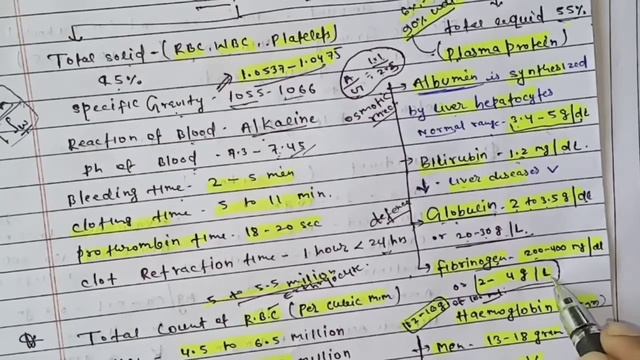 Total solid - (RBC, WBC, Platelets)
45%
1.0537-1.0475
Specific Gravity - 1055-1066
Reaction of Blood - Alkaline
Ph of Blood - 7.3 - 7.45
Bleeding time - 2 - 5 min
Cloting time - 5 to 11 min.
prothrombin time - 18 - 20 sec
Clot Refraction time - 1 hour < 24 hr
5 to 5.5 million
Total Count of R.B.C (Per cubic mm)
4.5 to 6.5 million
million
total liquid 55%
(plasma protein)
osmotic
Albumin is synthesized
by liver hepatocytes
normal range - 3.4-5g/dl
Bilirubin - 1.2 mg/dL
↓ - liver diseases
defence
Globulin - 2 to 3.5g/dl
or 20-30g/L.
fibrinogen - 200-400 mg/dl
or 2 - 4g/L
Haemoglobin
Men - 13-18 gram